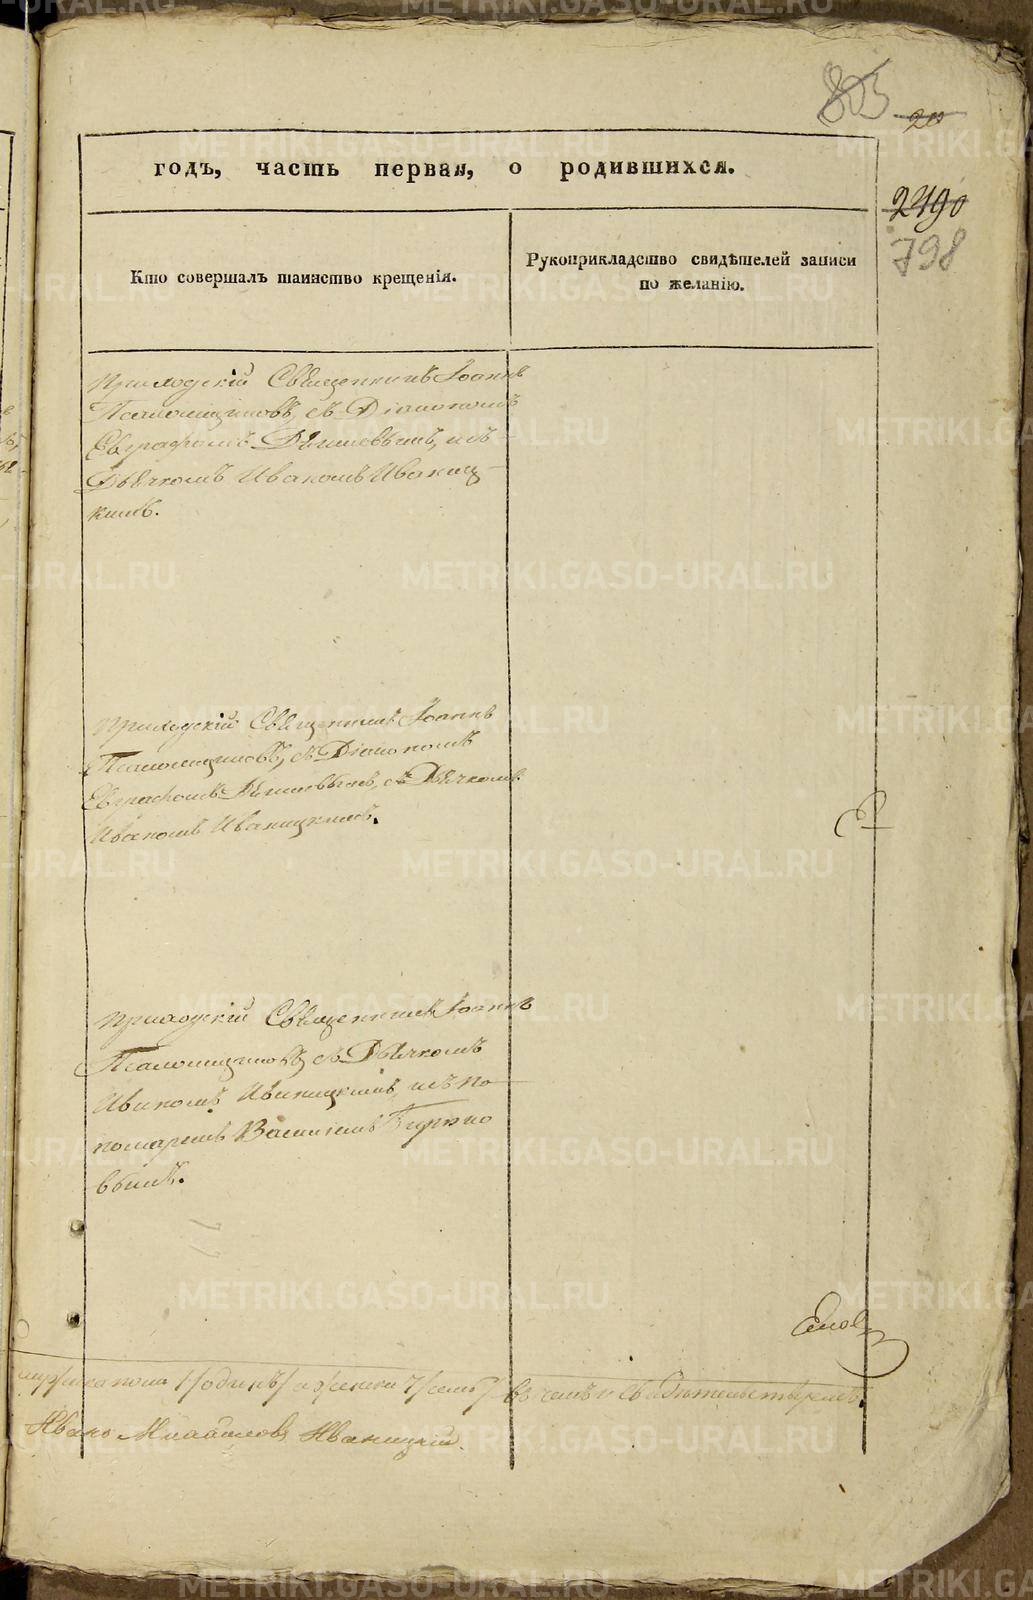 803
20
2490
798
годъ, часть первая, о родившихся.
Кто совершалъ таинство крещенія.
Рукоприкладство свидѣтелей записи
по желанію.
Приходскій Священникъ Іоаннъ
Псаломщиковъ, съ Діакономъ
Евграфомъ
Дьячкомъ Иваномъ Иваниц-
кимъ.
Приходскій Священникъ Іоаннъ
Псаломщиковъ, съ Діакономъ
Евграфомъ съ Дьячкомъ
Иваномъ Иваницкимъ.
Приходскій Священникъ Іоаннъ
Псаломщиковъ съ Дьячкомъ
Иваномъ Иваницкимъ, и съ по-
номаремъ Василіемъ
вымъ.
пола 1/одинъ/ а женска 7/семь/ въ чемъ и свидѣтельствуемъ.
Михайловъ Иваницкій.
METRIKI.GASO-URAL.RU